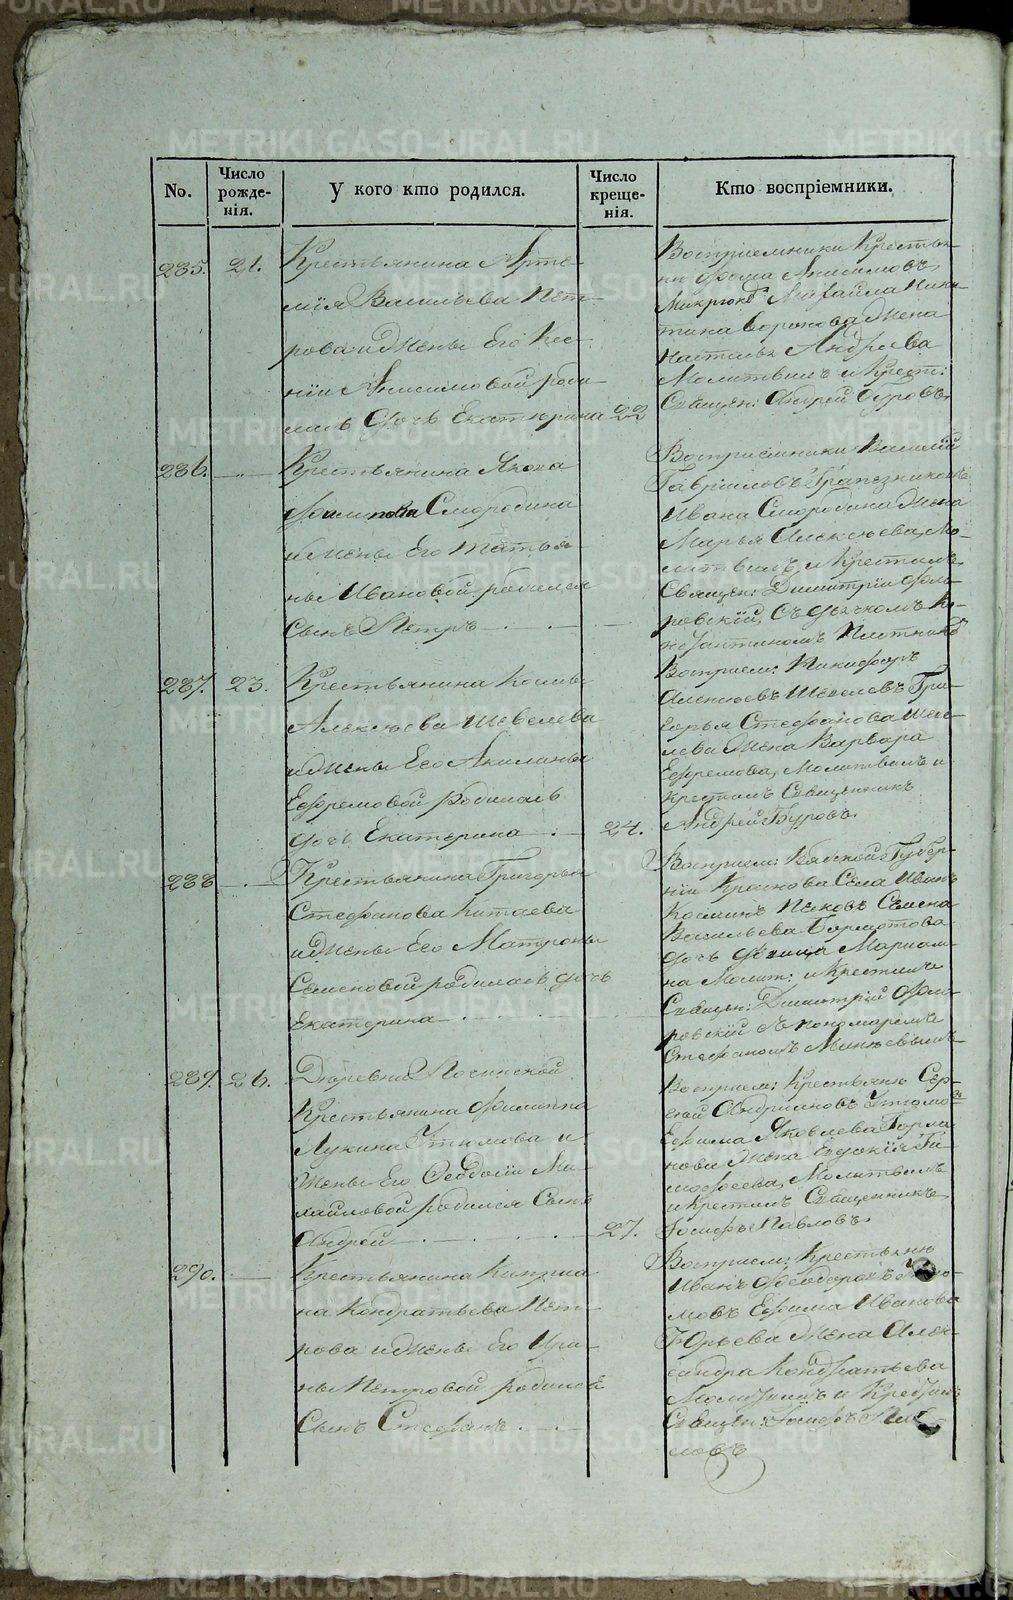 No.
Число рожде-
нія.
У кого кто родился.
Число креще-
нія.
Кто воспріемники.
235. 21. Крестьянина Арте-
мія Васильева Пет-
рова и жены Его Ксе-
ніи Анисимовой роди-
лась дочь Екатерина 22
Воспріемники Крестья-
Фома Анисимовъ
Михайла Ники-
тина Воронова жена
Наталья Андреева
Молитвилъ и Крест:
Священ: Андрей Буровъ
236. Крестьянина Якова
Филипова Смородина
и жены Его Татья-
ны Ивановой родился
Сынъ Петръ
Воспріемники Василій
Гавриловъ Трапезниковъ
Ивана Смородина жена
Марья Алексеева, Мо-
литвилъ и Крестилъ
Священ: Димитрій Фло-
ровскій, Съ дьячкомъ Ко-
нстантиномъ Плотник
237. 23. Крестьянина Космы
Алексеева Шевелева
и жены Его Акилины
Ефремовой родилась
дочь Екатерина 24.
Воспріем: Никифоръ
Алексеевъ Шевелевъ Гри-
горья Стефанова Шеве-
лева жена Варвара
Ефремова, Молитвилъ и
Крестилъ Священникъ
Андрей Буровъ.
238 Крестьянина Григорья
Стефанова Китаева
и жены Его Матроны
Семеновой родилась дочь
Екатерина
Воспріем: Вятской Губер-
ніи Села Иванъ
Козминъ Семена
Васильева
дочь девица Мариам-
на Молит: и Крестилъ
Священ: Димитрій Фло-
ровскій съ пономаремъ
Стефаномъ
239. 26. Деревни
Крестьянина Филиппа
Лукина Устинова и
жены Его Феодосіи Ми-
хайловой родился Сынъ
Андрей 27.
Воспріем: Крестьяне Сер-
гей Андриановъ
Ефима Яковлева
нова жена Евдокія Ти-
мофеева, Молитвилъ
и Крестилъ Священникъ
Іосифъ Павловъ.
290. Крестьянина Киприа-
на Кондратьева Пет-
рова и жены Его Ири-
ны Петровой родился
Сынъ Стефанъ
Воспріем: Крестьяне
Иванъ Феодоровъ
мовъ Ефима Иванова
Юрьева жена Алек-
сандра Кондратьева
Молитвилъ и Крестилъ
Священ: Іосифъ Пав-
ловъ
METRIKI.GASO-URAL.RU